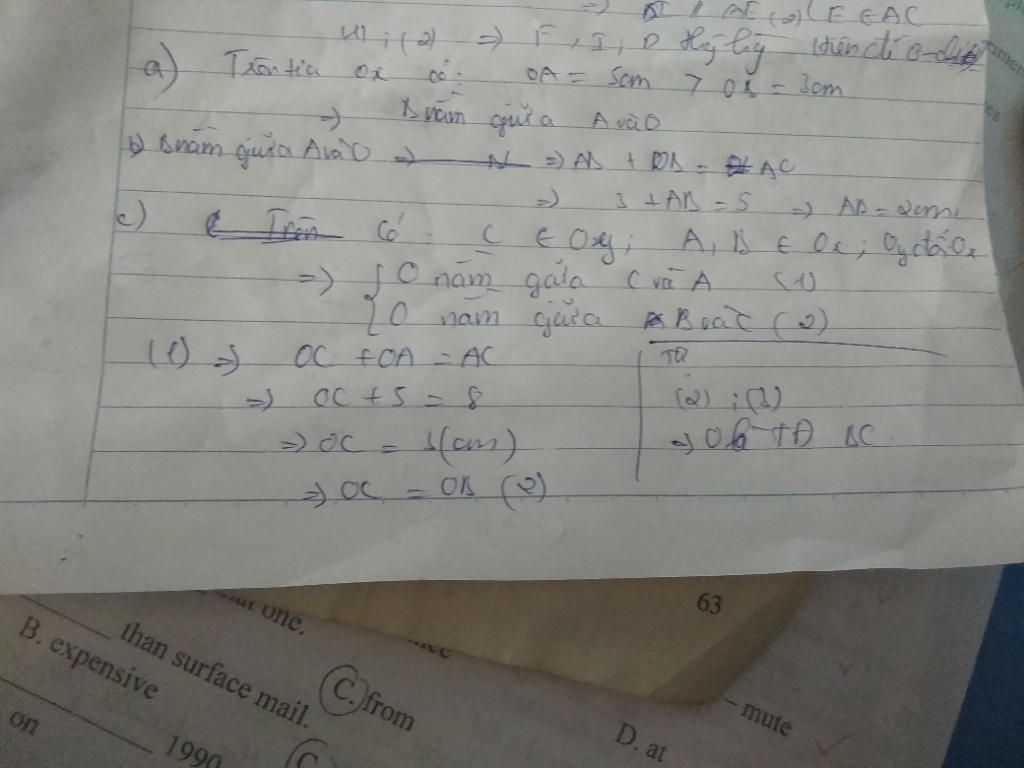 => DI // AE (2) ( E ∈ AC
(1) ; (2) => F, I, D
a) Trên tia Ox có: OA = 5cm > OB = 3cm
=> B nằm giữa A và O
b) B nằm giữa A và O => AB + OB = AC
=> 3 + AB = 5 => AB = 2cm
c) Trên Có: C ∈ Oxy; A, B ∈ Ox; Oy đối Ox
=> { O nằm giữa C và A (1)
{ O nằm giữa B và C (2)
(1) => OC + OA = AC
=> OC + 5 = 8
=> OC = 3(cm)
=> OC = OB (2)
Từ
(2) ; (3)
=> O là TĐ BC
63
one.
than surface mail.
B. expensive
C. from
– mute
D. at
on
1990